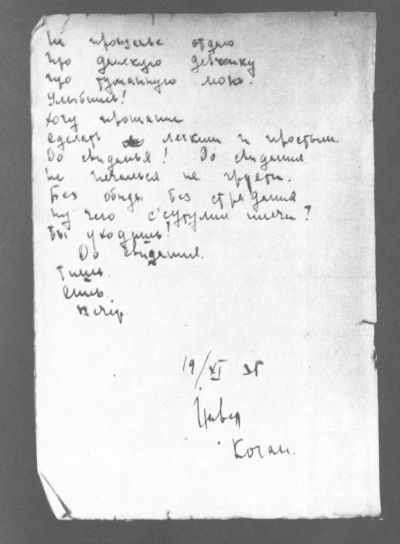 На прощанье отдаю
про далекую девчонку
про туманную мою.
Улыбнись!
Хочу прощание
сделать легким и простым
До свиданья! До свидания
не печалься не грусти.
Без обиды без страдания
ну чего ссутулил плечи?
Ты уходишь!
До свидания.
Тишь.
19/XI
Павел
Коган.